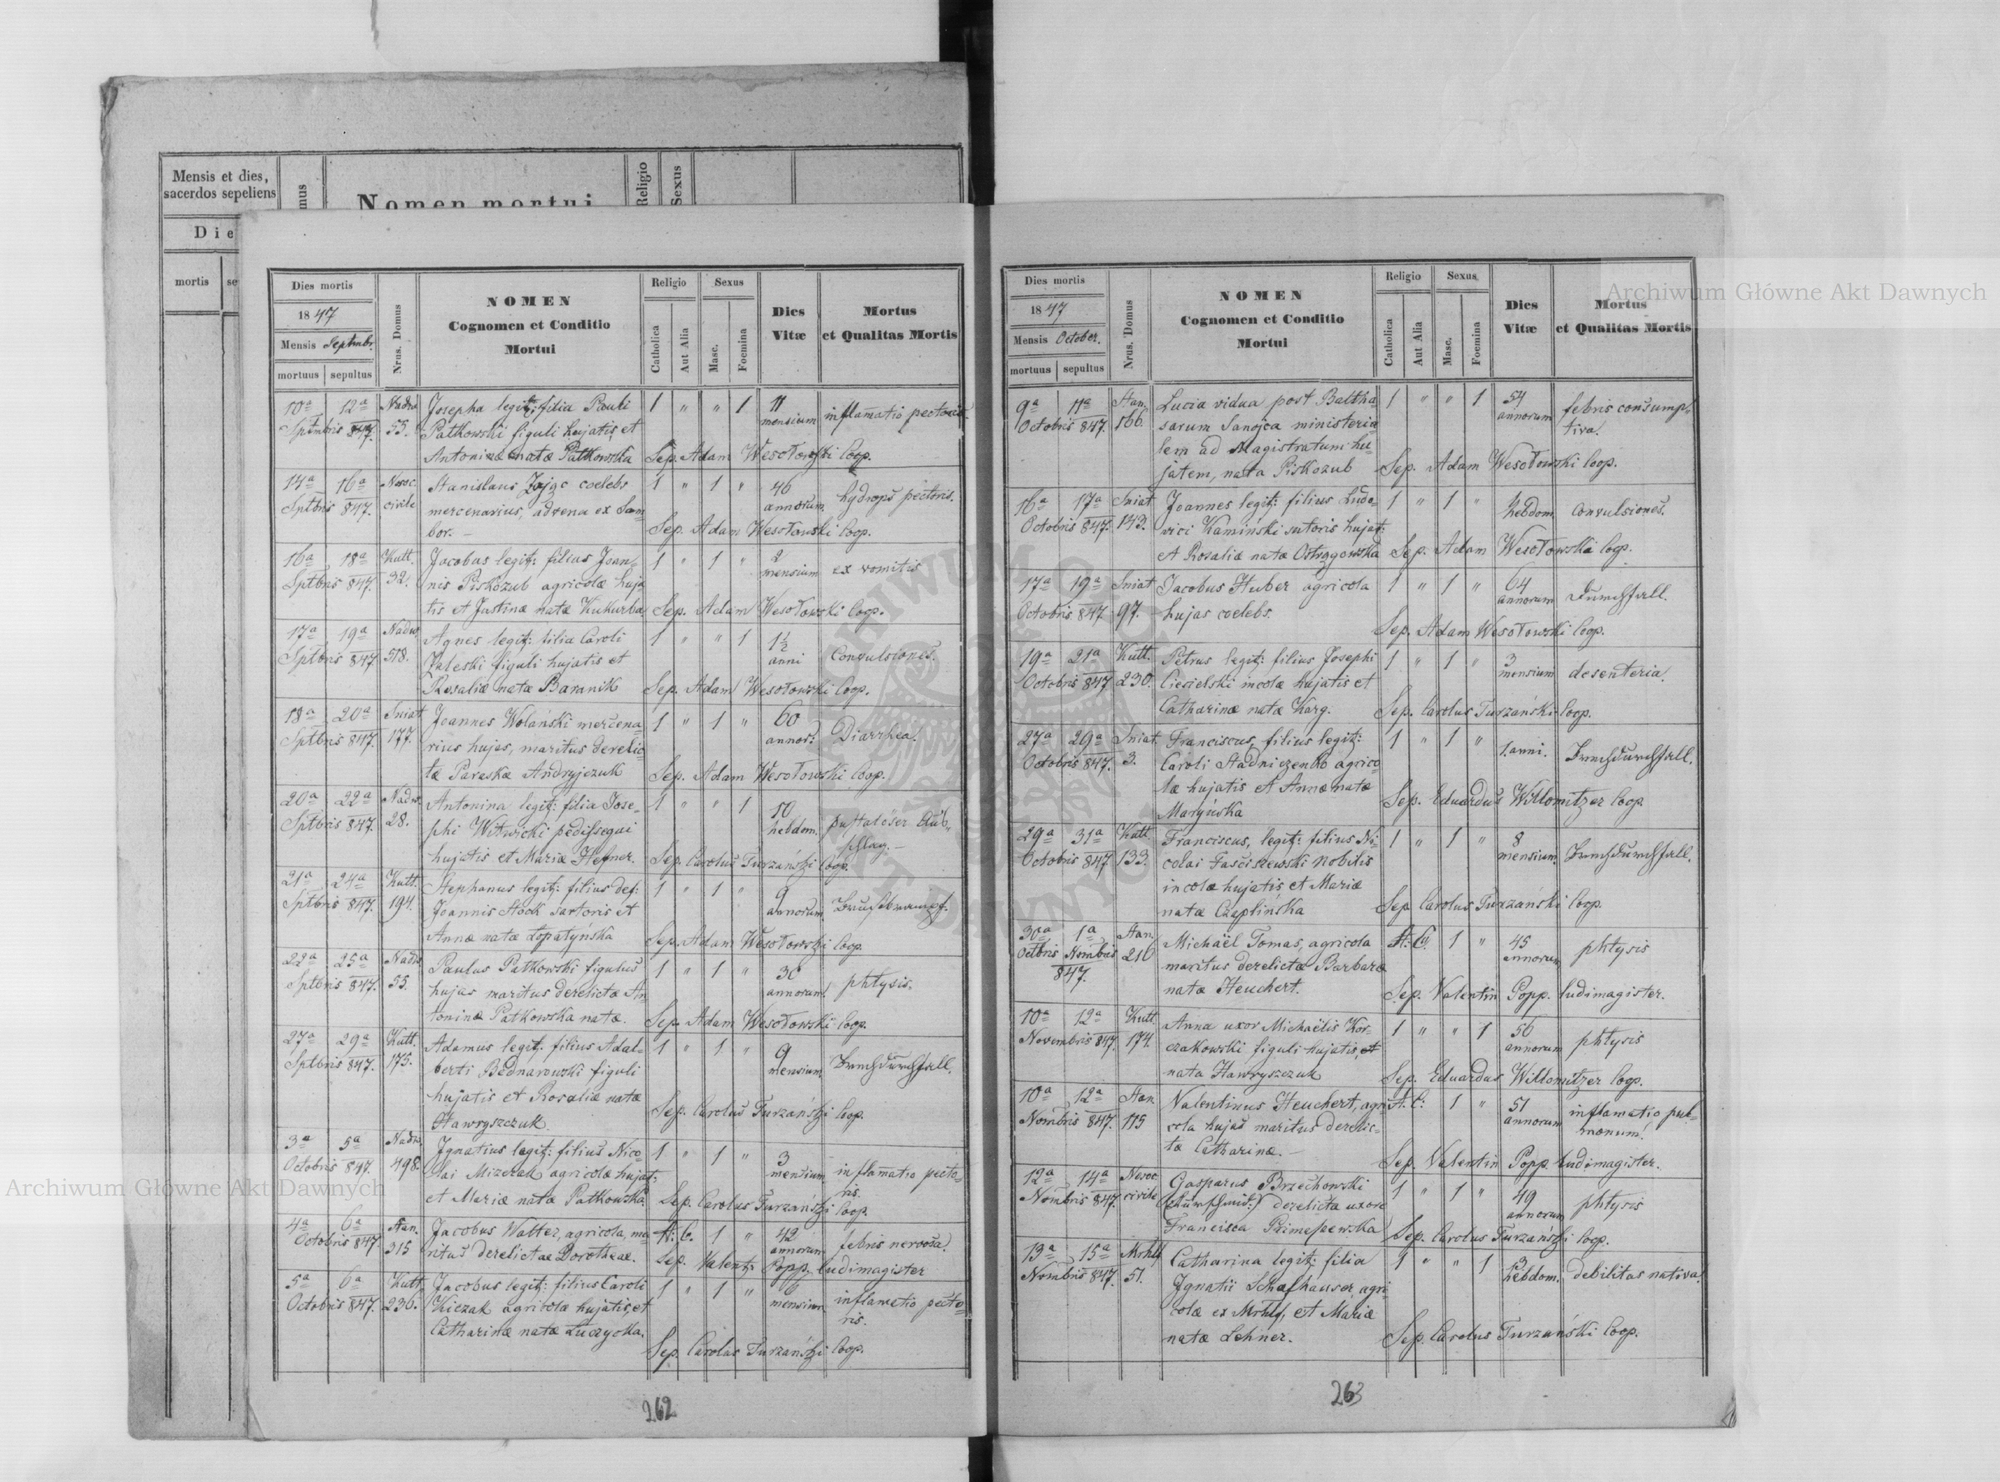 Mensis et dies,
sacerdos sepeliens
Nomen mortui
Religio
Sexus
mortis
Dies mortis
1847
Mensis Septembr.
mortuus sepultus
Nrus. Domus
NOMEN
Cognomen et Conditio
Mortui
Religio
Catholica
Aut Alia
Sexus
Masc.
Foemina
Dies
Vitæ
Mortus
et Qualitas Mortis
10a 12a 55. Josepha legit: filia Pauli 1 " " 1 11 mensium inflamatio pectoris.
Sptmbris 847. Patkowski figuli hujatis et
Antoninæ natæ Patkowska Sep. Adam Wesołowski Coop.
14a 16a Nosoc. civile Stanislaus Zając coelebs 1 " 1 " 46 annorum hydrops pectoris.
Sptbris 847. mercenarius, advena ex Sam-
bor. Sep. Adam Wesołowski Coop.
16a 18a Kutt. 32. Jacobus legit: filius Joan- 1 " 1 " 2 mensium ex vomitis
Sptbris 847. nis Piskozub agricolæ huja-
tis et Justinæ natæ Kukurba Sep. Adam Wesołowski Coop.
17a 19a 518. Agnes legit: filia Caroli 1 " " 1 1½ anni Convulsiones.
Sptbris 847 Zaleski figuli hujatis et
Rosaliæ natæ Baranik Sep. Adam Wesołowski Coop.
18a 20a Sniat 177. Joannes Wolański mercena- 1 " 1 " 60 annor: Diarrhea.
Sptbris 847. rius hujas, maritus derelic-
tæ Paraskæ Andryjczuk Sep. Adam Wesołowski Coop.
20a 22a 28. Antonina legit: filia Jose- 1 " " 1 10 hebdom.
Sptbris 847. phi Witwicki
hujatis et Mariæ Hefner. Sep. Carolus Turzański Coop.
21a 24a Kutt. 194. Stephanus legit: filius def: 1 " 1 " 9 annorum
Sptbris 847. Joannis Stock sartoris et
Annæ natæ Łopatyńska Sep. Adam Wesołowski Coop.
22a 25a 55. Paulus Patkowski figulus 1 " 1 " 30 annorum. phtysis.
Sptbris 847. hujas maritus derelictæ An-
toninæ Patkowska natæ. Sep. Adam Wesołowski Coop.
27a 29a Kutt. 175. Adamus legit: filius Adal- 1 " 1 " 9 mensium. Bruchdurchfall.
Sptbris 847. berti Bednarowski figuli
hujatis et Rosaliæ natæ Sep. Carolus Turzański Coop.
Hawryszczuk.
3a 5a 498. Ignatius legit: filius Nico- 1 " 1 " 3 mensium inflamatio pecto-
Octobris 847. lai Mizerak agricolæ hujat: ris.
et Mariæ natæ Patkowska. Sep. Carolus Turzański Coop.
4a 6a Stan. 315 Jacobus Walter, agricola, ma- A: C. 1 " 42 annorum febris nervosa.
Octobris 847 ritus derelictae Dorotheae. Sep. Valent: Popp ludimagister
5a 6a Kutt. 236. Jacobus legit: filius Caroli 1 " 1 " 6 mensium inflamatio pecto-
Octobris 847. Kiczak agricolæ hujatis, et ris.
Catharinæ natæ Łuczycka. Sep. Carolus Turzański Coop.
262
Dies mortis
1847
Mensis October.
mortuus sepultus
Nrus. Domus
NOMEN
Cognomen et Conditio
Mortui
Religio
Catholica
Aut Alia
Sexus
Masc.
Foemina
Dies
Vitæ
Mortus
et Qualitas Mortis
9a 11a Stan. 166. Lucia vidua post Baltha- 1 " " 1 54 annorum febris consump-
Octobris 847. sarum Sanojca ministeria- tiva.
lem ad Magistratum hu-
jatem, nata Piskozub Sep. Adam Wesołowski Coop.
16a 17a Sniat 143. Joannes legit: filius Ludo- 1 " 1 " hebdom. Convulsiones.
Octobris 847. vici Kamiński sutoris hujat:
et Rosaliæ natæ Ostrzyowska Sep. Adam Wesołowski Coop.
17a 19a Sniat 97. Jacobus Huber agricola 1 " 1 " 64 annorum Durchfall.
Octobris 847 hujas coelebs.
Sep. Adam Wesołowski Coop.
19a 21a Kutt. 230. Petrus legit: filius Josephi 1 " 1 " 3 mensium desenteria.
Octobris 847 Ciesielski incolæ hujatis et
Catharinæ natæ Karg. Sep. Carolus Turzański Coop.
27a 29a Sniat. 3. Franciscus, filius legit: 1 " 1 " 1 anni. Bruchdurchfall.
Octobris 847. Caroli Stadniczenko agrico-
læ hujatis et Annæ natæ Sep. Eduardus Willomitzer Coop
Maryńska
29a 31a Kutt. 133. Franciscus, legit: filius Ni- 1 " 1 " 8 mensium Bruchdurchfall.
Octobris 847 colai Faściszewski nobilis
incolæ hujatis, et Mariæ Sep. Carolus Turzański Coop.
natæ Czeplińska
30a 1a Stan. 216 Michaël Tomas, agricola A: C. 1 " 45 annorum phtysis
Octbris Nombris 847. maritus derelictæ Barbaræ
natæ Heuchert. Sep. Valentin Popp. ludimagister.
10a 12a Kutt. 174. Anna uxor Michaëlis Kor- 1 " " 1 56 annorum phtysis
Novembris 847. czakowski figuli hujatis, et
nata Hawryszczuk Sep. Eduardus Willomitzer Coop.
10a 12a Stan 115 Valentinus Heuchert, agri- A: C: 1 " 51 annorum inflamatio pul-
Nombris 847. cola hujas maritus derelic- monum.
tæ Catharinæ. Sep. Valentin Popp. ludimagister.
12a 14a Nosoc. civile Gasparus Brzechowski 1 " 1 " 49 annorum phtysis
Nombris 847. derelicta uxore
Francisca Sep. Carolus Turzański Coop.
13a 15a Mrhlf 51. Catharina legit: filia 1 " " 1 3 hebdom. debilitas nativa.
Nombris 847. Ygnatii Schafhauser agri-
colæ ex Mrhlf, et Mariæ
natæ Lehner. Sep. Carolus Turzański Coop.
263
Archiwum Główne Akt Dawnych
Archiwum Główne Akt Dawnych